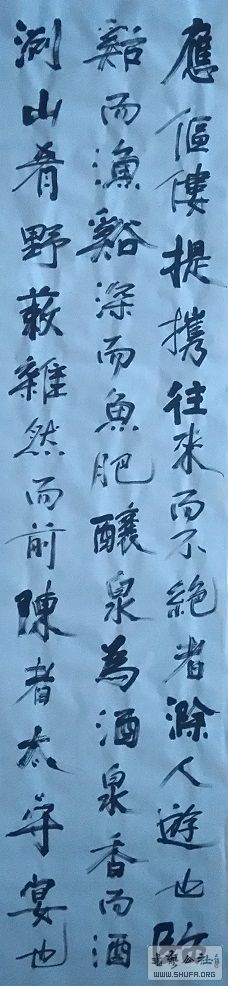 應傴僂提攜往來而不絕者滁人遊也臨
谿而漁谿深而魚肥釀泉為酒泉香而酒
洌山肴野蔌雜然而前陳者太守宴也
書藝公社
WWW.SHUFA.ORG